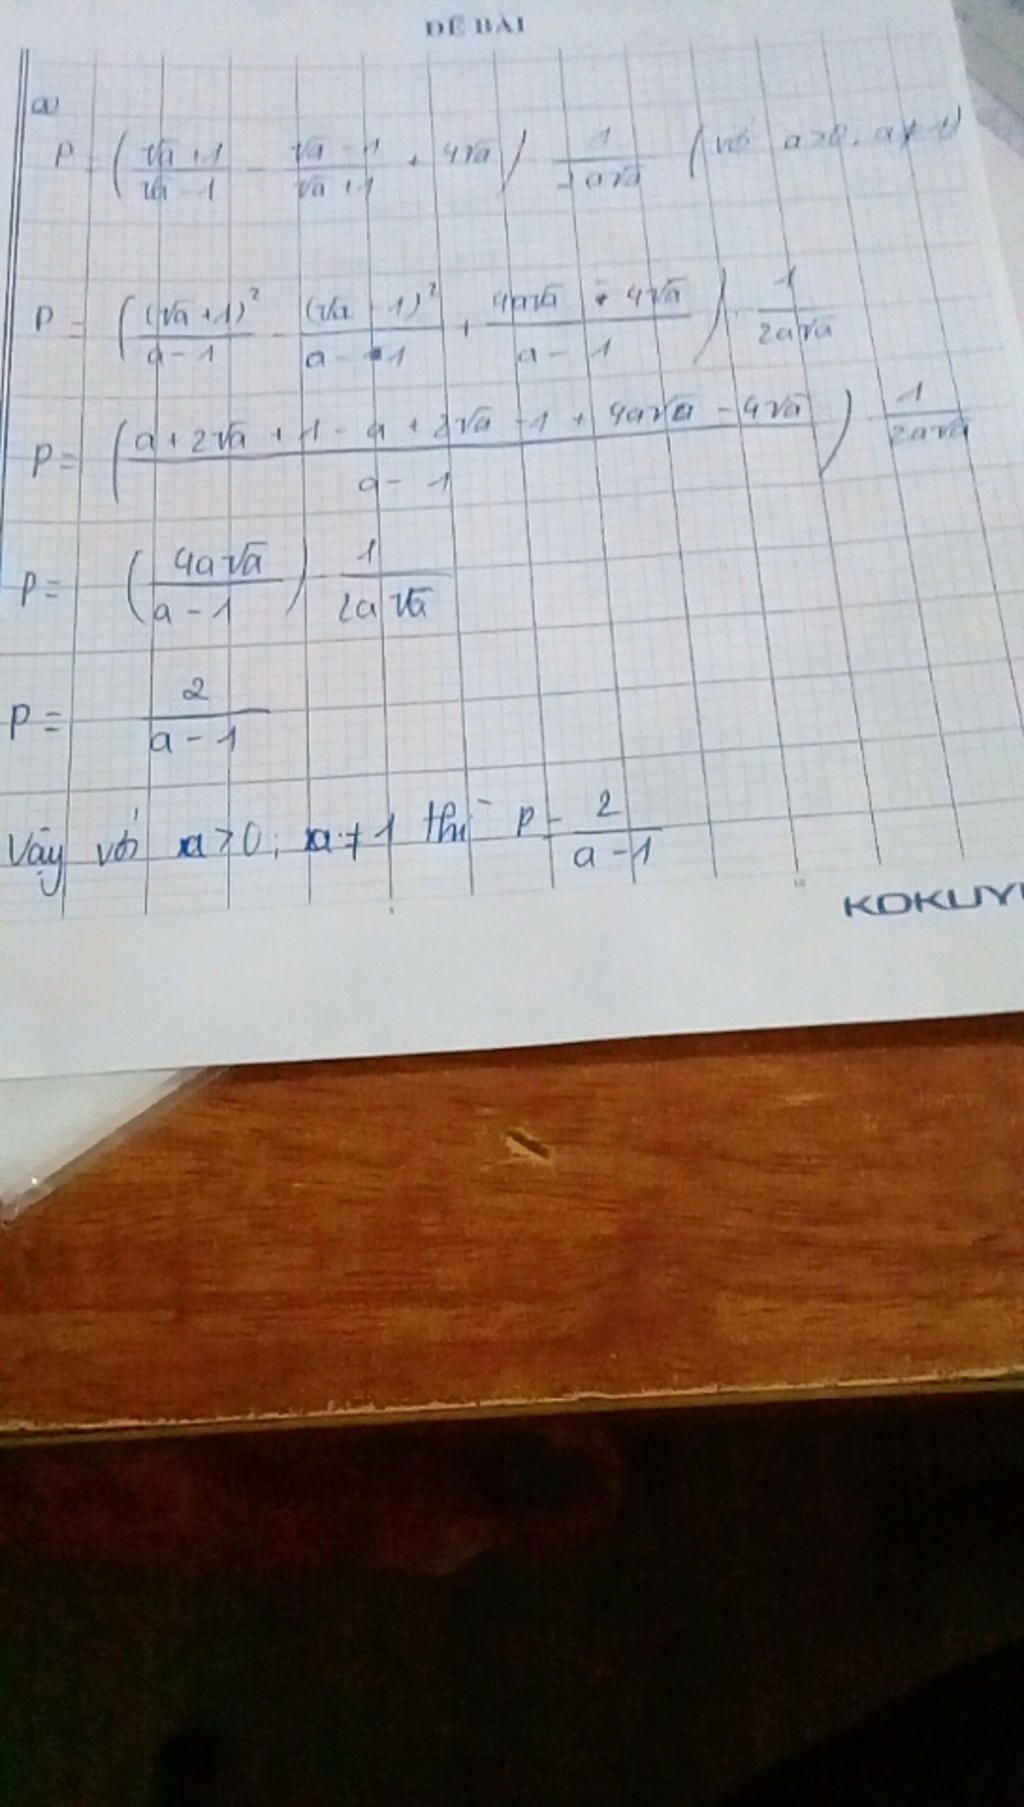 ĐỀ BÀI
a)
P = ( (√a + 1)/(√a - 1) - (√a - 1)/(√a + 1) + 4√a ) · 1/(2a√a) (với a > 0; a ≠ 1)
P = ( (√a + 1)²/(a - 1) - (√a - 1)²/(a - 1) + (4a√a - 4√a)/(a - 1) ) · 1/(2a√a)
P = ( (a + 2√a + 1 - a + 2√a - 1 + 4a√a - 4√a)/(a - 1) ) · 1/(2a√a)
P = ( 4a√a/(a - 1) ) · 1/(2a√a)
P = 2/(a - 1)
Vậy với a > 0; a ≠ 1 thì P = 2/(a - 1)
KOKUY